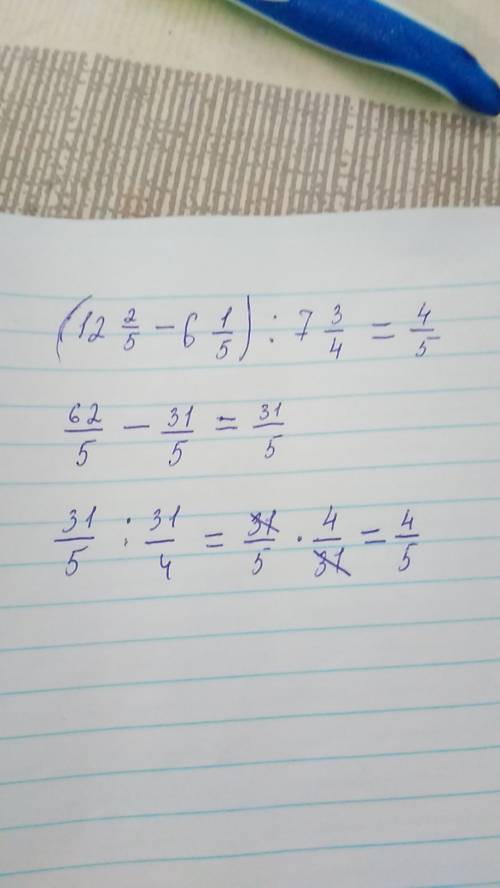 (12 2/5 - 6 1/5) : 7 3/4 = 4/5
62/5 - 31/5 = 31/5
31/5 : 31/4 = 31/5 · 4/31 = 4/5